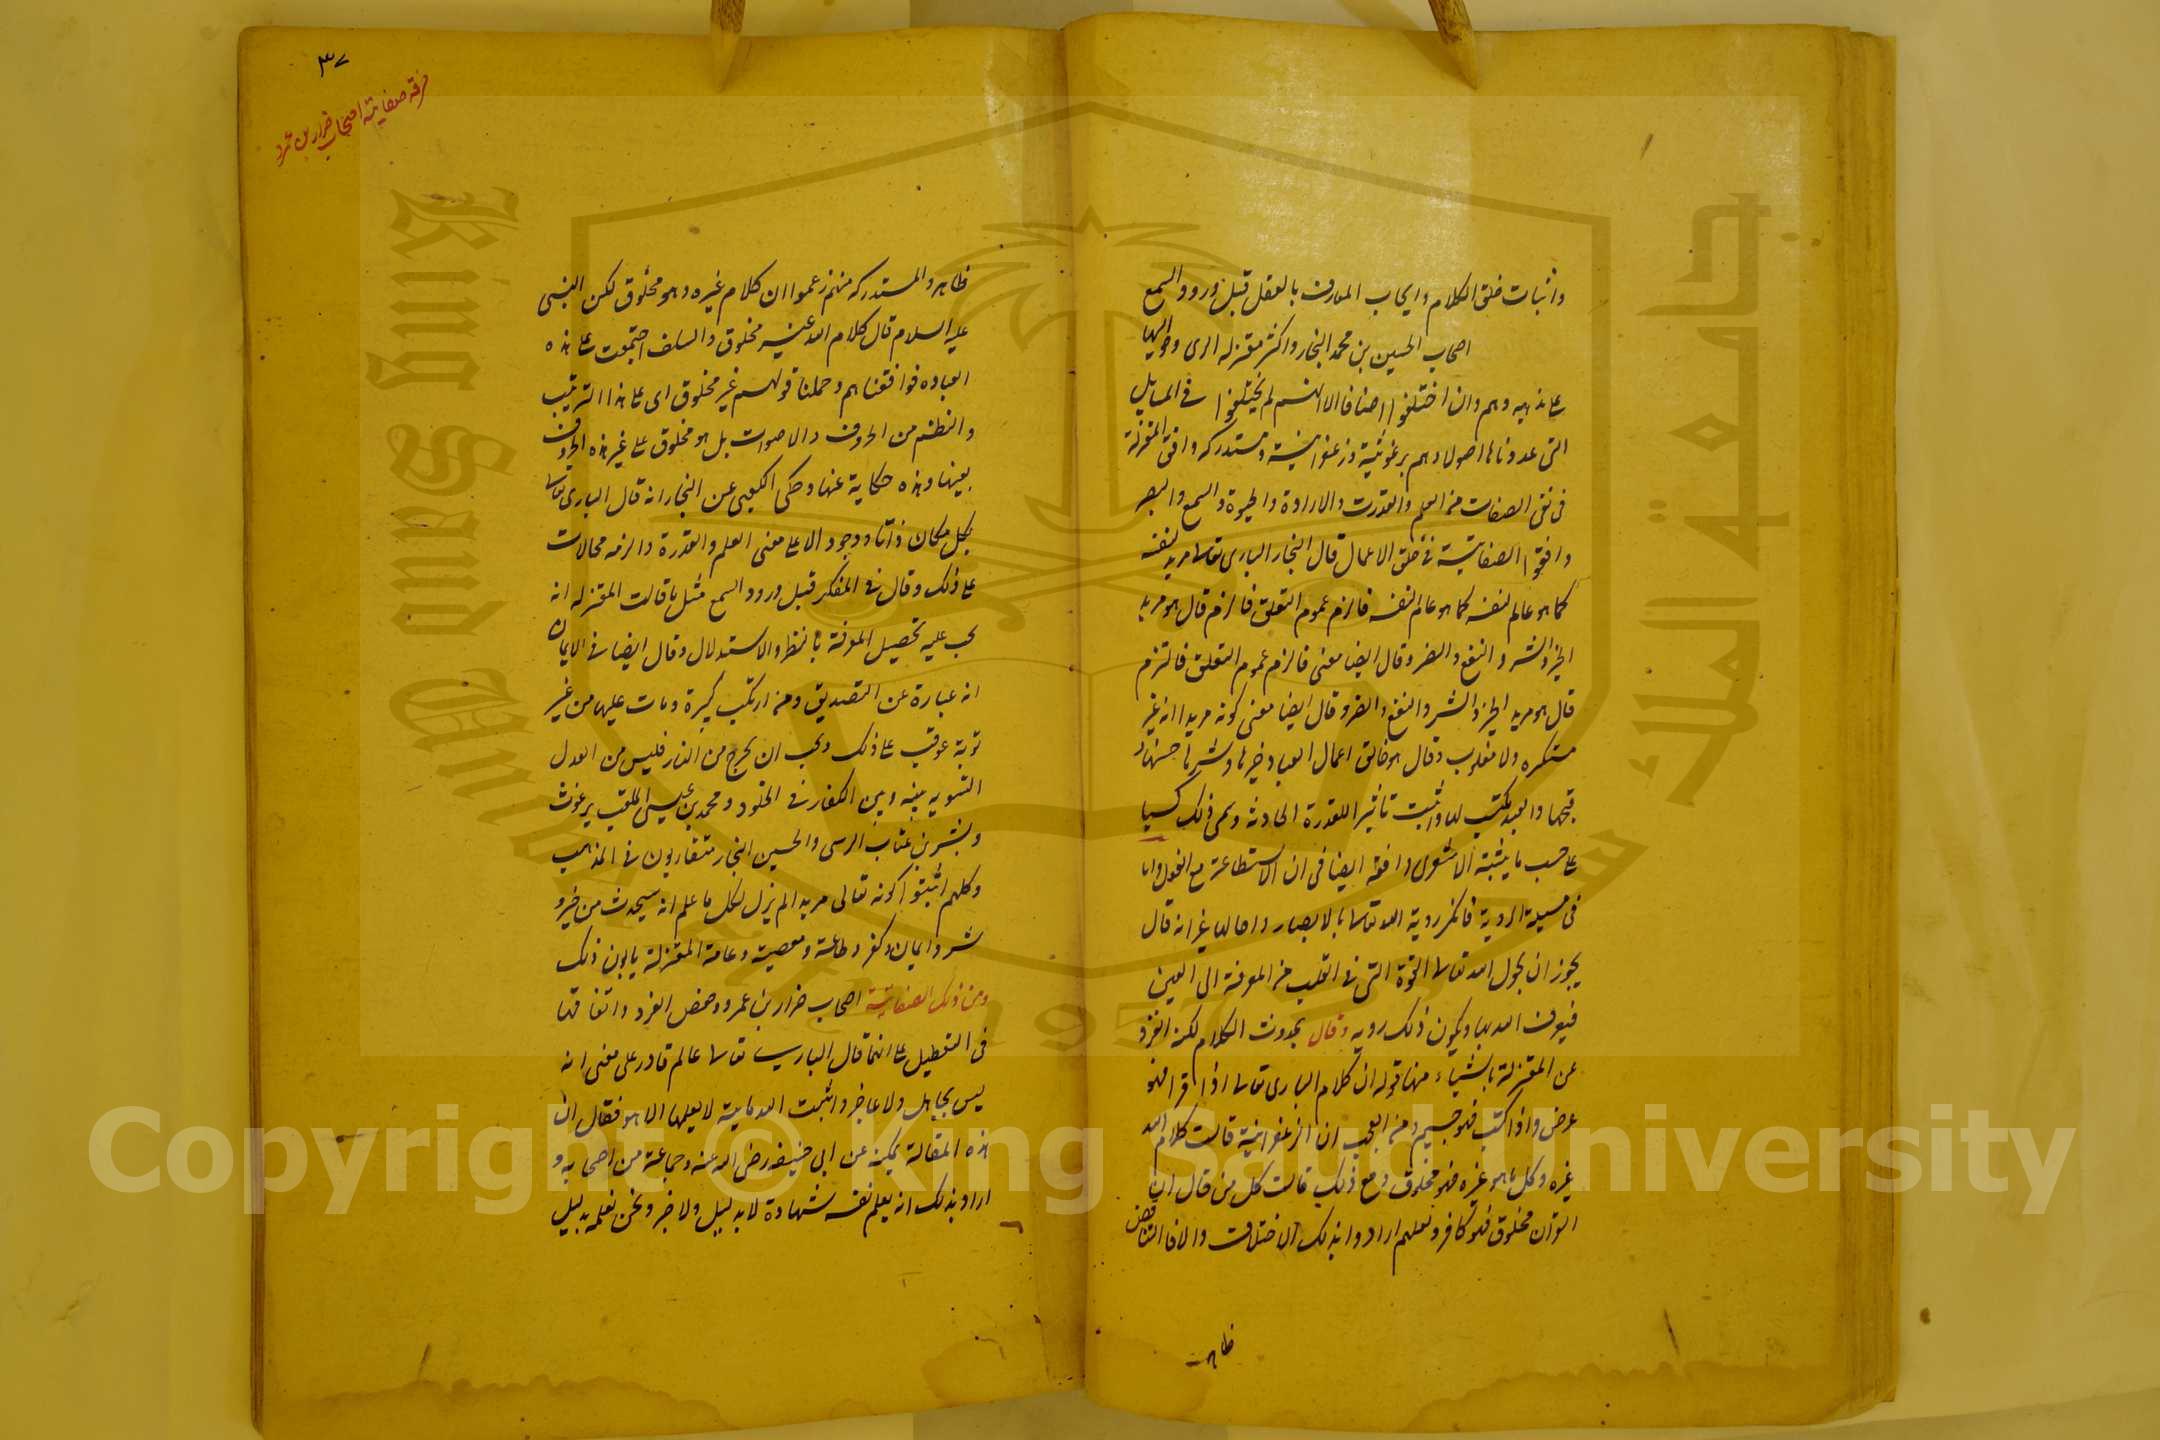 واثبات خلق الكلام وايجاب المعارف بالعقل قبل ورود السمع
اصحاب الحسين بن محمد النجار واكثر معتزله الرى وحواليها
على مذهبه وهم وان اختلفوا اصنافا الا انهم لم يختلفوا فى المسايل
التى عددناها اصولا وهم برغوثية وزعفرانية ومستدركه وافق المعتزلة
فى نفى الصفات من العلم والقدرت والارادة والحيوة والسمع والبصر
وافقوا الصفاتية فى خلق الاعمال قال النجار البارى تعالى مريد لنفسه
كما هو عالم لنفسه كما هو عالم لنفسه فالزم عموم التعلق فالزم قال هو مريد
الخير والشر والنفع والضر وقال ايضا معنى فالزم عموم التعلق فالتزم
قال هو مريد الخير والشر والنفع والضر وقال ايضا معنى كونه مريدا انه غير
مستكره ولا مغلوب وقال هو خالق اعمال العباد خيرها وشرها حسنها و
قبحها والعبد مكتسب لها واثبت تأثيرا للقدرة الحادثة وسمى ذلك كسبا
على حسب ما يثبته الاشعرى وافقه ايضا فى ان الاستطاعة مع الفعل واما
فى مسيلة الروية فانكر روية الله تعالى بالابصار واحالها غير انه قال
يجوز ان يحول الله تعالى القوة التى فى القلب من المعرفة الى العين
فيعرف الله بها ويكون ذلك رويه وقال بحدوث الكلام لكنه انفرد
عن المعتزلة باشياء منها قوله ان كلام البارى تعالى اذا قرا فهو
عرض واذا كتب فهو جسم ومن العجب ان الزعفرانية قالت كلام الله
غيره وكل ما هو غيره فهو مخلوق ومع ذلك قالت كل من قال ان
القرآن مخلوق فهو كافر ولعلهم ارادوا بذلك الاختلاق والا فالتناقض
ظاهر
٣٧
فرقه صفاتية اصحاب ضرار بن عمرو
ظاهر والمستدركه منهم زعموا ان كلام غيره وهو مخلوق لكن النبى
عليه السلام قال كلام الله غير مخلوق والسلف اجتمعت على هذه
العباره فوافقناهم وحملنا قولهم غير مخلوق اى على هذا الترتيب
والنظم من الحروف والاصوات بل هو مخلوق على غير هذه الحروف
بعينها وهذه حكاية عنها وحكى الكعبى عن النجار انه قال البارى تعالى
بكل مكان ذاتا ووجودا لا على معنى العلم والقدرة والزمه محالات
على ذلك وقال فى المفكر قبل ورود السمع مثل ما قالت المعتزله انه
يجب عليه تحصيل المعرفة بالنظر والاستدلال وقال ايضا فى الايمان
انه عبارة عن التصديق ومن ارتكب كبيرة ومات عليها من غير
توبة عوقب على ذلك ويجب ان يخرج من النار فليس من العدل
التسويه بينه وبين الكفار فى الخلود ومحمد بن عيسى الملقب ببرغوث
وبشر بن عتاب المرسى والحسين النجار متقاربون فى المذهب
وكلهم اثبتوا كونه تعالى مريدا لم يزل لكل ما علم انه سيحدث من خير و
شر وايمان وكفر وطاعة ومعصية وعامة المعتزلة يابون ذلك
ومن ذلك الصفاتية اصحاب ضرار بن عمرو وحفص الفرد واتفاقهما
فى التعطيل على انهما قال البارى تعالى عالم قادر على معنى انه
ليس بجاهل ولا عاجز واثبت لله ماهية لا يعلمها الا هو فقال ان
هذه المقالة يحكيه عن ابى حنيفه رضى الله عنه وجماعة من اصحابه و
اراد بذلك انه يعلم نفسه شهادة لا بدليل ولا خبر ونحن نعلمه بدليل
Copyright © King Saud University
King Saud University
جامعة الملك سعود
1957